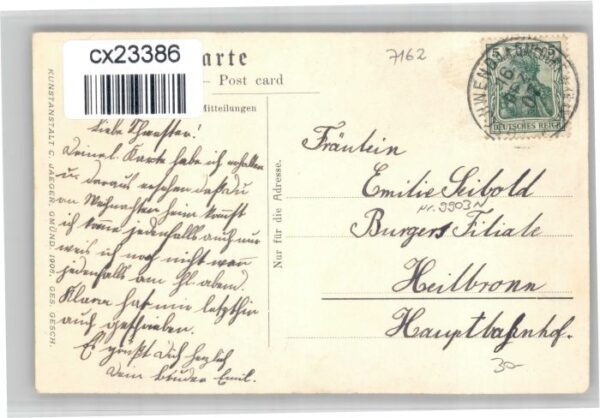 cx23386
karte
7162
Post card
Mitteilungen
Liebe Schwester!
Deine l. Karte habe ich erhalten
u. daraus ersehen daß du
an Weihnachten heim kommst
ich komme jedenfalls auch nur
weis ich noch nicht wan
jedenfalls am hl. abend.
Klara hat mir letzthin
auch geschrieben.
Es grüßt Dich herzlich
Dein bruder Emil.
KUNSTANSTALT C. JAEGER, GMÜND. 1906. GES. GESCH.
Nur für die Adresse.
DEUTSCHES REICH
Fräulein
Emilie Seibold
Nr. 9903 N
Burgers Filiale
Heilbronn
Hauptbahnhof.
30-